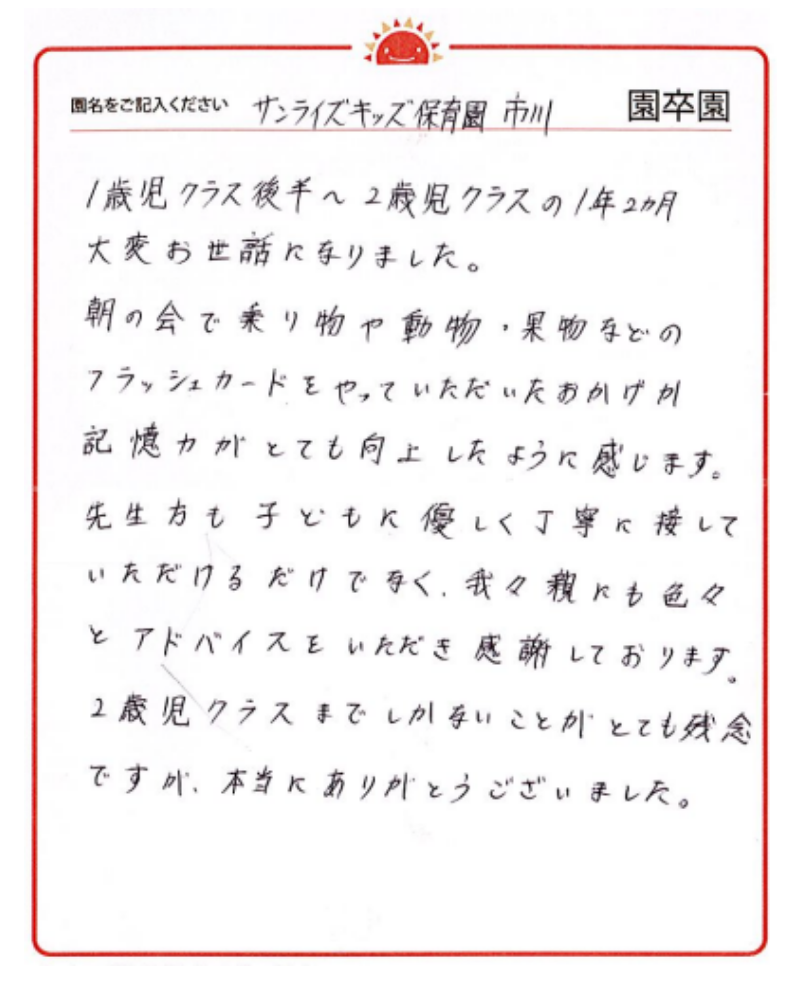 園名をご記入ください サンライズキッズ保育園 市川 園卒園
1歳児クラス後半〜2歳児クラスの1年2ヵ月
大変お世話になりました。
朝の会で乗り物や動物・果物などの
フラッシュカードをやっていただいたおかげか
記憶力がとても向上したように感じます。
先生方も子どもに優しく丁寧に接して
いただけるだけでなく、我々親にも色々
とアドバイスをいただき感謝しております。
2歳児クラスまでしかないことがとても残念
ですが、本当にありがとうございました。